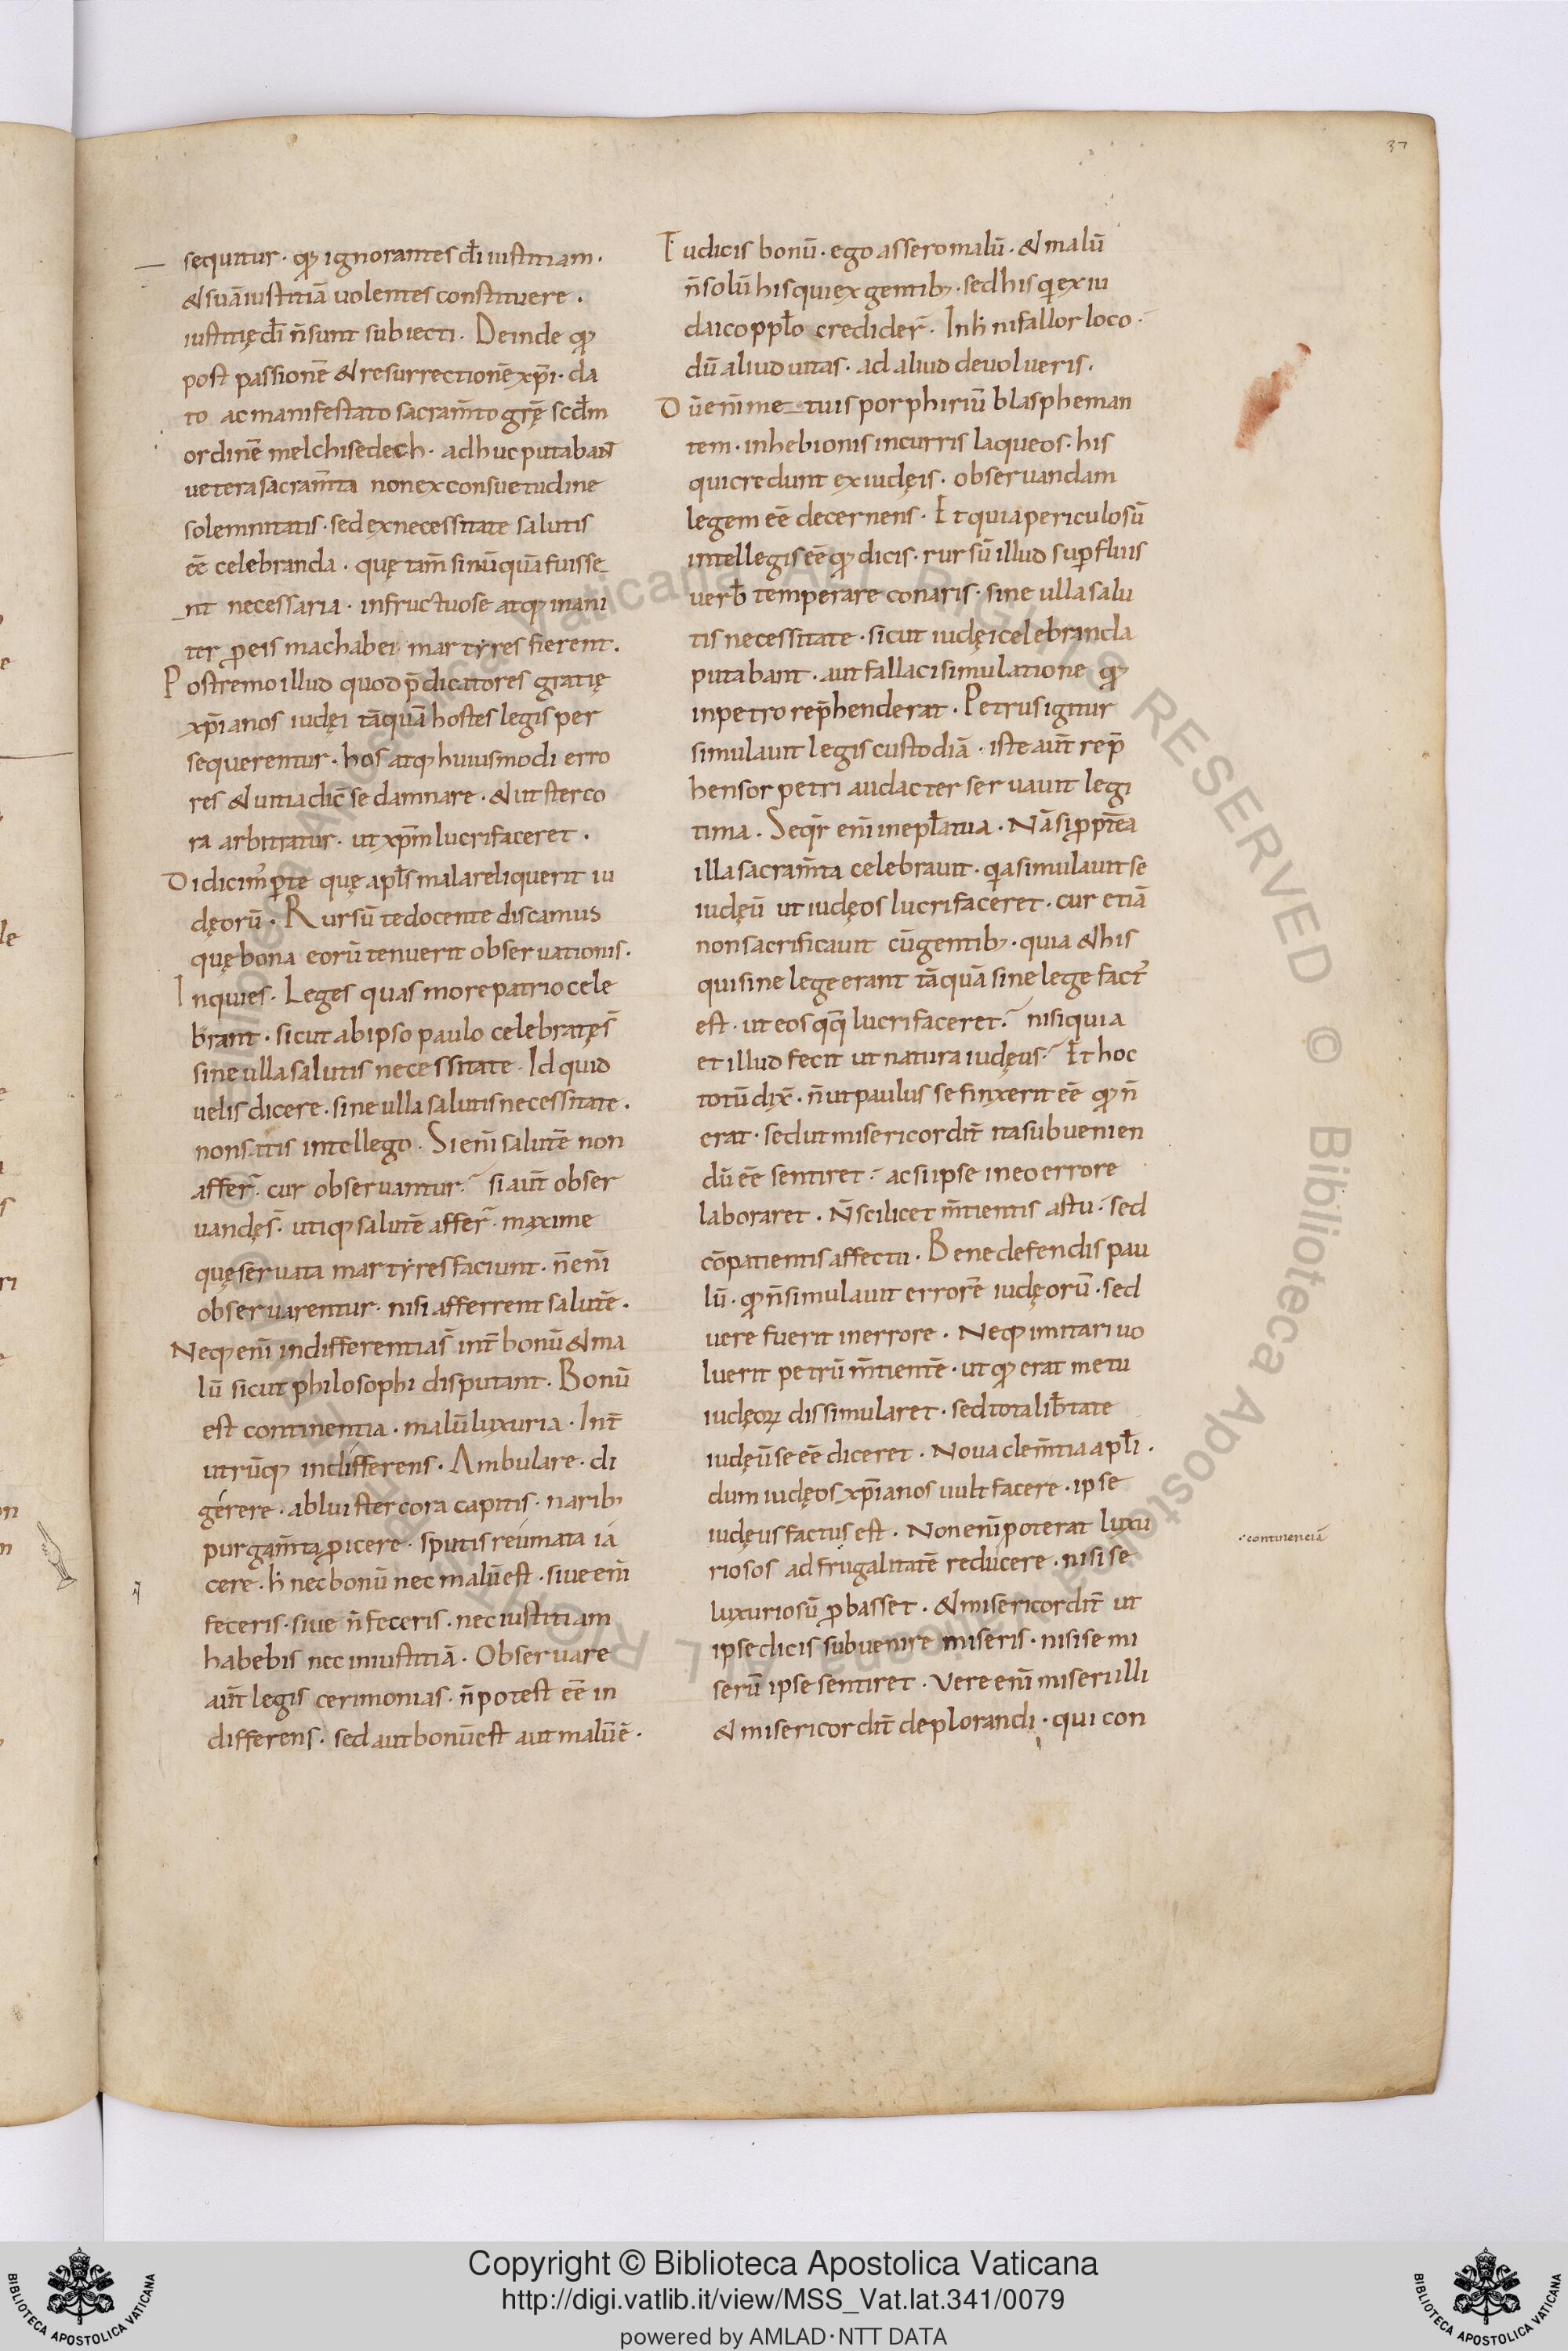 37
sequitur · qđ ignorantes dī iustitiam ·
& suā iustitiā uolentes constituere ·
iustitię dī n̄ sunt subiecti · Deinde qđ
post passionē & resurrectionē xp̄i · da
to ac manifestato sacram̄to gr̄ę scd̄m
ordinē melchisedech · adhuc putabaɴt
uetera sacram̄ta non ex consuetudine
solemnitatis · sed ex necessitate salutis
eē celebranda · quę tam̄ si nūquā fuisse
nt necessaria · infructuose atq; inani
ter p eis machabei martyres fierent ·
Postremo illud quod p̄dicatores gratię
xp̄ianos iudęi tāquā hostes legis per
sequerentur · hos atq; huiusmodi erro
res & uitia dic̄ se damnare · & ut sterco
ra arbitratur · ut xp̄m lucrifaceret ·
Didicim' p te quę apl̄s mala reliquerit iu
dęorū · Rursū te docente discamus
quę bona eorū tenuerit obseruationis ·
Inquies · Leges quas more patrio cele
brant · sicut ab ipso paulo celebratę s̄
sine ulla salutis necessitate · Id quid
uelis dicere · sine ulla salutis necessitate ·
non satis intellego · Si eni salutē non
affer̄ · cur obseruantur · si aūt obser
uandę s̄ · utiq; salutē affer̄ · maxime
quę seruata martyres faciunt · n̄ enī
obseruarentur · nisi afferrent salutē ·
Neq; enī indifferentia s̄ int̄ bonū & ma
lū sicut philosophi disputant · Bonū
est continentia · malū luxuria · Int̄
utrūq; indifferens · Ambulare · di
gerere · ablui stercora capitis · narib;
purgam̄ta p icere · sputis reumata ia
cere · h̄ nec bonū nec malū est · siue enī
feceris · siue n̄ feceris · nec iustitiam
habebis nec iniustitiā · Obseruare
aūt legis cerimonias · n̄ potest eē in
differens · sed aut bonū est aut malū ē ·
Tu dicis bonū · ego assero malū · & malū
n̄ solū his qui ex gentib; · sed his q ex iu
daico pplo credider̄ · In h̄ ni fallor loco ·
dū aliud uitas · ad aliud deuolueris ·
Dū enī metuis porphiriū blaspheman
tem · in hebionis incurris laqueos · his
qui credunt ex iudęis · obseruandam
legem eē decernens · Et quia periculosū
intellegis eē qđ dicis · rursū illud supfluis
uerb̄ temperare conaris · sine ulla salu
tis necessitate · sicut iudęi celebranda
putabant · aut fallaci simulatione qđ
in petro rep̄henderat · Petrus igitur
simulauit legis custodiā · iste aūt rep̄
hensor petri audacter seruauit legi
tima · Seqr̄ enī in epl̄a tua · Nā si ppt̄ea
illa sacram̄ta celebrauit · qa simulauit se
iudęū ut iudęos lucrifaceret · cur etiā
non sacrificauit cū gentib; · quia & his
qui sine lege erant tāquā sine lege fact'
est · ut eos qq lucrifaceret · nisi quia
et illud fecit ut natura iudęus · Et hoc
totū dix̄ · n̄ ut paulus se finxerit eē qđ n̄
erat · sed ut misericordit̄ ita subuenien
dū eē sentiret · ac si ipse in eo errore
laboraret · N̄ scilicet m̄tientis astu · sed
cōpatientis affectu · Bene defendis pau
lū · qđ n̄ simulauit errorē iudęorū · sed
uere fuerit in errore · Neq; imitari uo
luerit petrū m̄tientē · ut qđ erat metu
iudęoꝝ dissimularet · sed tota lib̄tate
iudęū se eē diceret · Noua clem̄tia apl̄i ·
dum iudęos xp̄ianos uult facere · ipse
iudęus factus est · Non enī poterat luxu
riosos ad frugalitatē reducere · nisi se
luxuriosū p basset · & misericordit̄ ut
ipse dicis subuenire miseris · nisi se mi
serū ipse sentiret · Vere enī miseri illi
& misericordit̄ deplorandi · qui con
continenciā
Copyright © Biblioteca Apostolica Vaticana
http://digi.vatlib.it/view/MSS_Vat.lat.341/0079
powered by AMLAD·NTT DATA
BIBLIOTECA APOSTOLICA VATICANA
BIBLIOTECA APOSTOLICA VATICANA